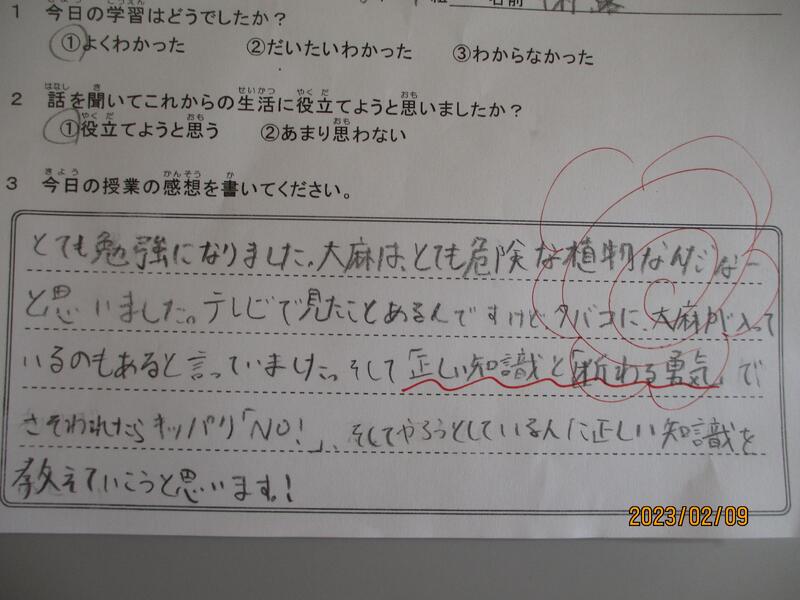 1 今日の学習はどうでしたか？
①よくわかった ②だいたいわかった ③わからなかった
2 話を聞いてこれからの生活に役立てようと思いましたか？
①役立てようと思う ②あまり思わない
3 今日の授業の感想を書いてください。
とても勉強になりました。大麻は、とても危険な植物なんだなー
と思いました。テレビで見たことあるんですけど、タバコに、大麻が入って
いるのもあると言っていました。そして「正しい知識と「断わる勇気」で
さそわれたらキッパリ「NO!」、そしてやろうとしている人に正しい知識を
教えていこうと思います。!
2023/02/09